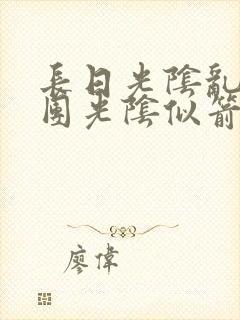 長日光陰亂
團光陰似箭
廖偉